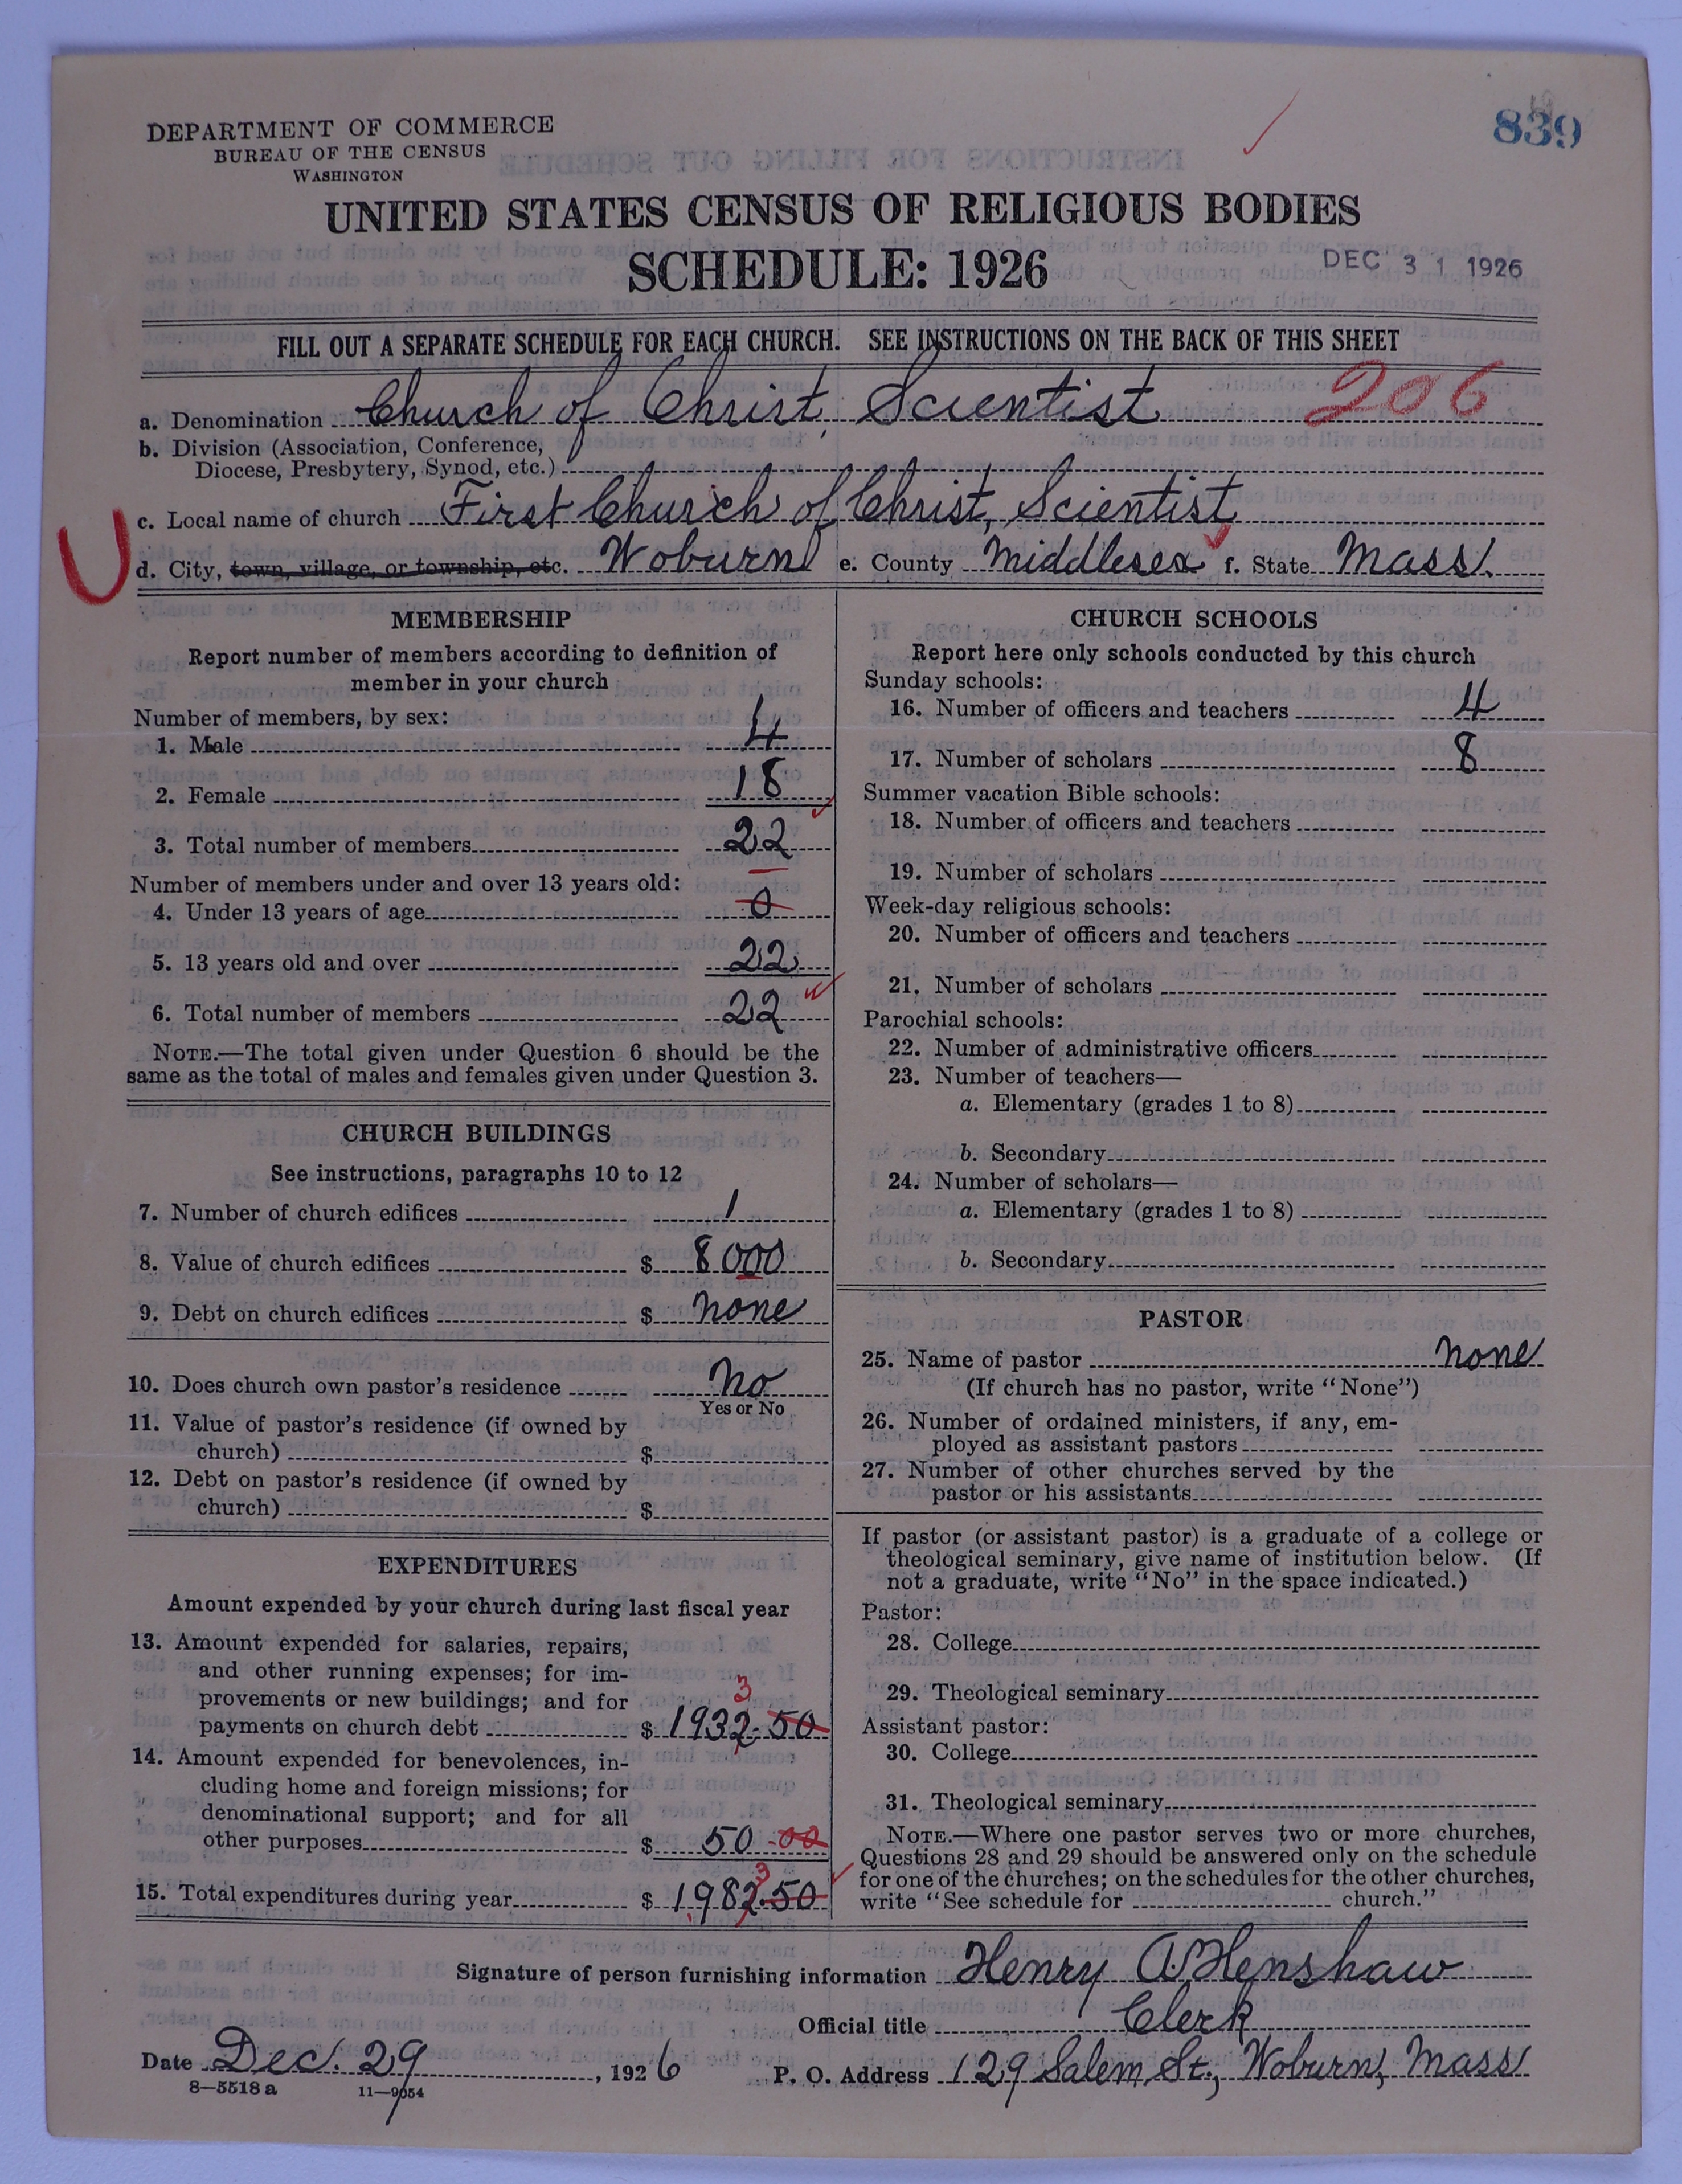 839
DEPARTMENT OF COMMERCE
BUREAU OF THE CENSUS
WASHINGTON
UNITED STATES CENSUS OF RELIGIOUS BODIES
SCHEDULE: 1926
DEC 31 1926
FILL OUT A SEPARATE SCHEDULE FOR EACH CHURCH. SEE INSTRUCTIONS ON THE BACK OF THIS SHEET
206
a. Denomination Church of Christ, Scientist
b. Division (Association, Conference,
Diocese, Presbytery, Synod, etc.)
c. Local name of church First Church of Christ, Scientist
d. City, town, village, or township, etc. Woburn e. County Middlesex f. State Mass.
MEMBERSHIP
Report number of members according to definition of
member in your church
Number of members, by sex:
1. Male 4
2. Female 18
3. Total number of members 22
Number of members under and over 13 years old:
4. Under 13 years of age 0
5. 13 years old and over 22
6. Total number of members 22
NOTE.—The total given under Question 6 should be the
same as the total of males and females given under Question 3.
CHURCH BUILDINGS
See instructions, paragraphs 10 to 12
7. Number of church edifices 1
8. Value of church edifices $ 8000
9. Debt on church edifices $ none
10. Does church own pastor's residence No
Yes or No
11. Value of pastor's residence (if owned by
church) $
12. Debt on pastor's residence (if owned by
church) $
EXPENDITURES
Amount expended by your church during last fiscal year
13. Amount expended for salaries, repairs,
and other running expenses; for im-
provements or new buildings; and for
3
payments on church debt $ 1932.50
14. Amount expended for benevolences, in-
cluding home and foreign missions; for
denominational support; and for all
other purposes $ 50.00
3
15. Total expenditures during year $ 1982.50
CHURCH SCHOOLS
Report here only schools conducted by this church
Sunday schools:
16. Number of officers and teachers 4
17. Number of scholars 8
Summer vacation Bible schools:
18. Number of officers and teachers
19. Number of scholars
Week-day religious schools:
20. Number of officers and teachers
21. Number of scholars
Parochial schools:
22. Number of administrative officers
23. Number of teachers—
a. Elementary (grades 1 to 8)
b. Secondary
24. Number of scholars—
a. Elementary (grades 1 to 8)
b. Secondary
PASTOR
25. Name of pastor none
(If church has no pastor, write "None")
26. Number of ordained ministers, if any, em-
ployed as assistant pastors
27. Number of other churches served by the
pastor or his assistants
If pastor (or assistant pastor) is a graduate of a college or
theological seminary, give name of institution below. (If
not a graduate, write "No" in the space indicated.)
Pastor:
28. College
29. Theological seminary
Assistant pastor:
30. College
31. Theological seminary
NOTE.—Where one pastor serves two or more churches,
Questions 28 and 29 should be answered only on the schedule
for one of the churches; on the schedules for the other churches,
write "See schedule for church."
Signature of person furnishing information Henry A. Henshaw
Official title Clerk
Date Dec. 29, 1926 P. O. Address 129 Salem St., Woburn, Mass
8—5518a 11—9054